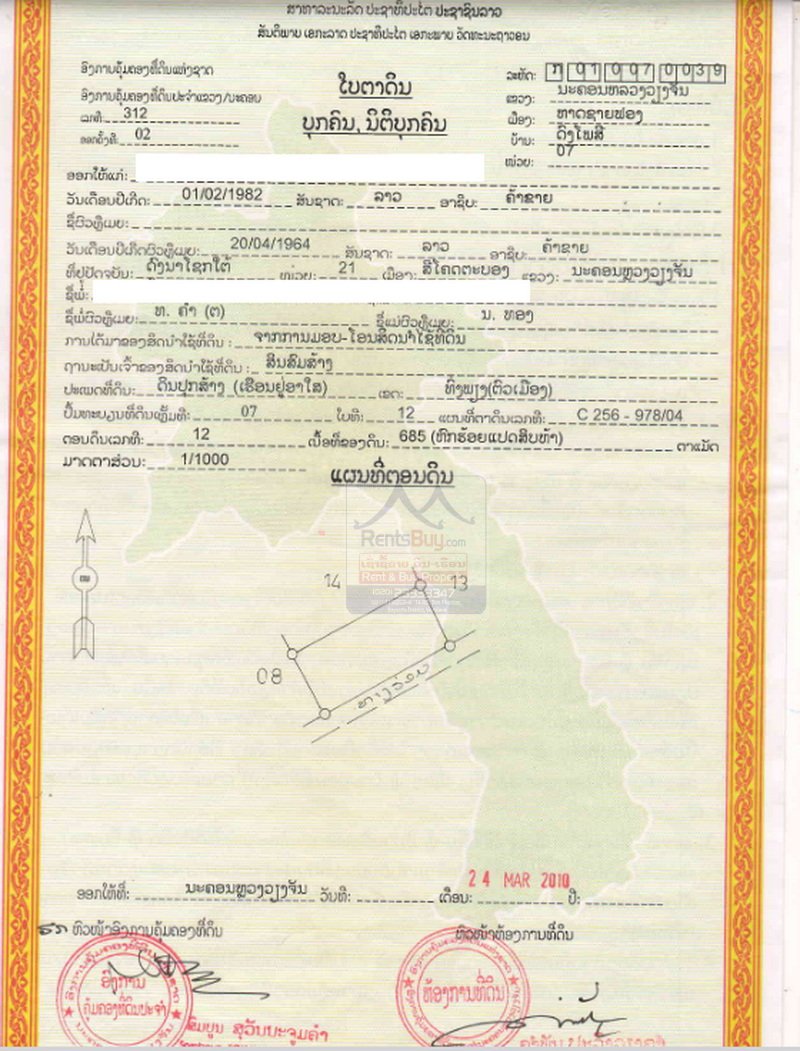 ສາທາລະນະລັດ ປະຊາທິປະໄຕ ປະຊາຊົນລາວ
ສັນຕິພາບ ເອກະລາດ ປະຊາທິປະໄຕ ເອກະພາບ ວັດທະນະຖາວອນ
ອົງການຄຸ້ມຄອງທີ່ດິນແຫ່ງຊາດ
ອົງການຄຸ້ມຄອງທີ່ດິນປະຈຳແຂວງ/ນະຄອນ
ເລກທີ: 312
ອອກຄັ້ງທີ: 02
ໃບຕາດິນ
ບຸກຄົນ, ນິຕິບຸກຄົນ
ລະຫັດ: 01 007 0039
ແຂວງ: ນະຄອນຫລວງວຽງຈັນ
ເມືອງ: ຫາດຊາຍຟອງ
ບ້ານ: ດົງໂພສີ
ໜ່ວຍ: 07
ອອກໃຫ້ແກ່:
ວັນເດືອນປີເກີດ: 01/02/1982 ສັນຊາດ: ລາວ ອາຊີບ: ຄ້າຂາຍ
ຊື່ຜົວຫຼືເມຍ:
ວັນເດືອນປີເກີດຜົວຫຼືເມຍ: 20/04/1964 ສັນຊາດ: ລາວ ອາຊີບ: ຄ້າຂາຍ
ທີ່ຢູ່ປັດຈຸບັນ: ດົງນາໂຊກໃຕ້ ໜ່ວຍ: 21 ເມືອງ: ສີໂຄດຕະບອງ ແຂວງ: ນະຄອນຫຼວງວຽງຈັນ
ຊື່ພໍ່:
ຊື່ພໍ່ຜົວຫຼືເມຍ: ທ. ຄຳ (ຕ) ຊື່ແມ່ຜົວຫຼືເມຍ: ນ. ທອງ
ການໄດ້ມາຂອງສິດນຳໃຊ້ທີ່ດິນ : ຈາກການມອບ-ໂອນສິດນຳໃຊ້ທີ່ດິນ
ຖານະເປັນເຈົ້າຂອງສິດນຳໃຊ້ທີ່ດິນ : ສິນສົມສ້າງ
ປະເພດທີ່ດິນ: ດິນປຸກສ້າງ (ເຮືອນຢູ່ອາໃສ) ເຂດ: ທົ່ງພຽງ(ຕົວເມືອງ)
ປຶ້ມທະບຽນທີ່ດິນເຫຼັ້ມທີ: 07 ໃບທີ: 12 ແຜນທີ່ຕາດິນເລກທີ: C 256 - 978/04
ຕອນດິນເລກທີ: 12 ເນື້ອທີ່ຂອງດິນ: 685 (ຫົກຮ້ອຍແປດສິບຫ້າ) ຕາແມັດ
ມາດຕາສ່ວນ: 1/1000
ແຜນທີ່ຕອນດິນ
RentsBuy.com
Rent & Buy Property
14
13
08
ທາງຮ່ອມ
24 MAR 2010
ອອກໃຫ້ທີ່: ນະຄອນຫຼວງວຽງຈັນ ວັນທີ: ເດືອນ: ປີ:
ຮກ ຫົວໜ້າອົງການຄຸ້ມຄອງທີ່ດິນ
ຫົວໜ້າຫ້ອງການທີ່ດິນ
ອົງການ
ຄຸ້ມຄອງທີ່ດິນປະຈຳ
ຫ້ອງການທີ່ດິນ
ສຸວັນນະຈູມຄຳ